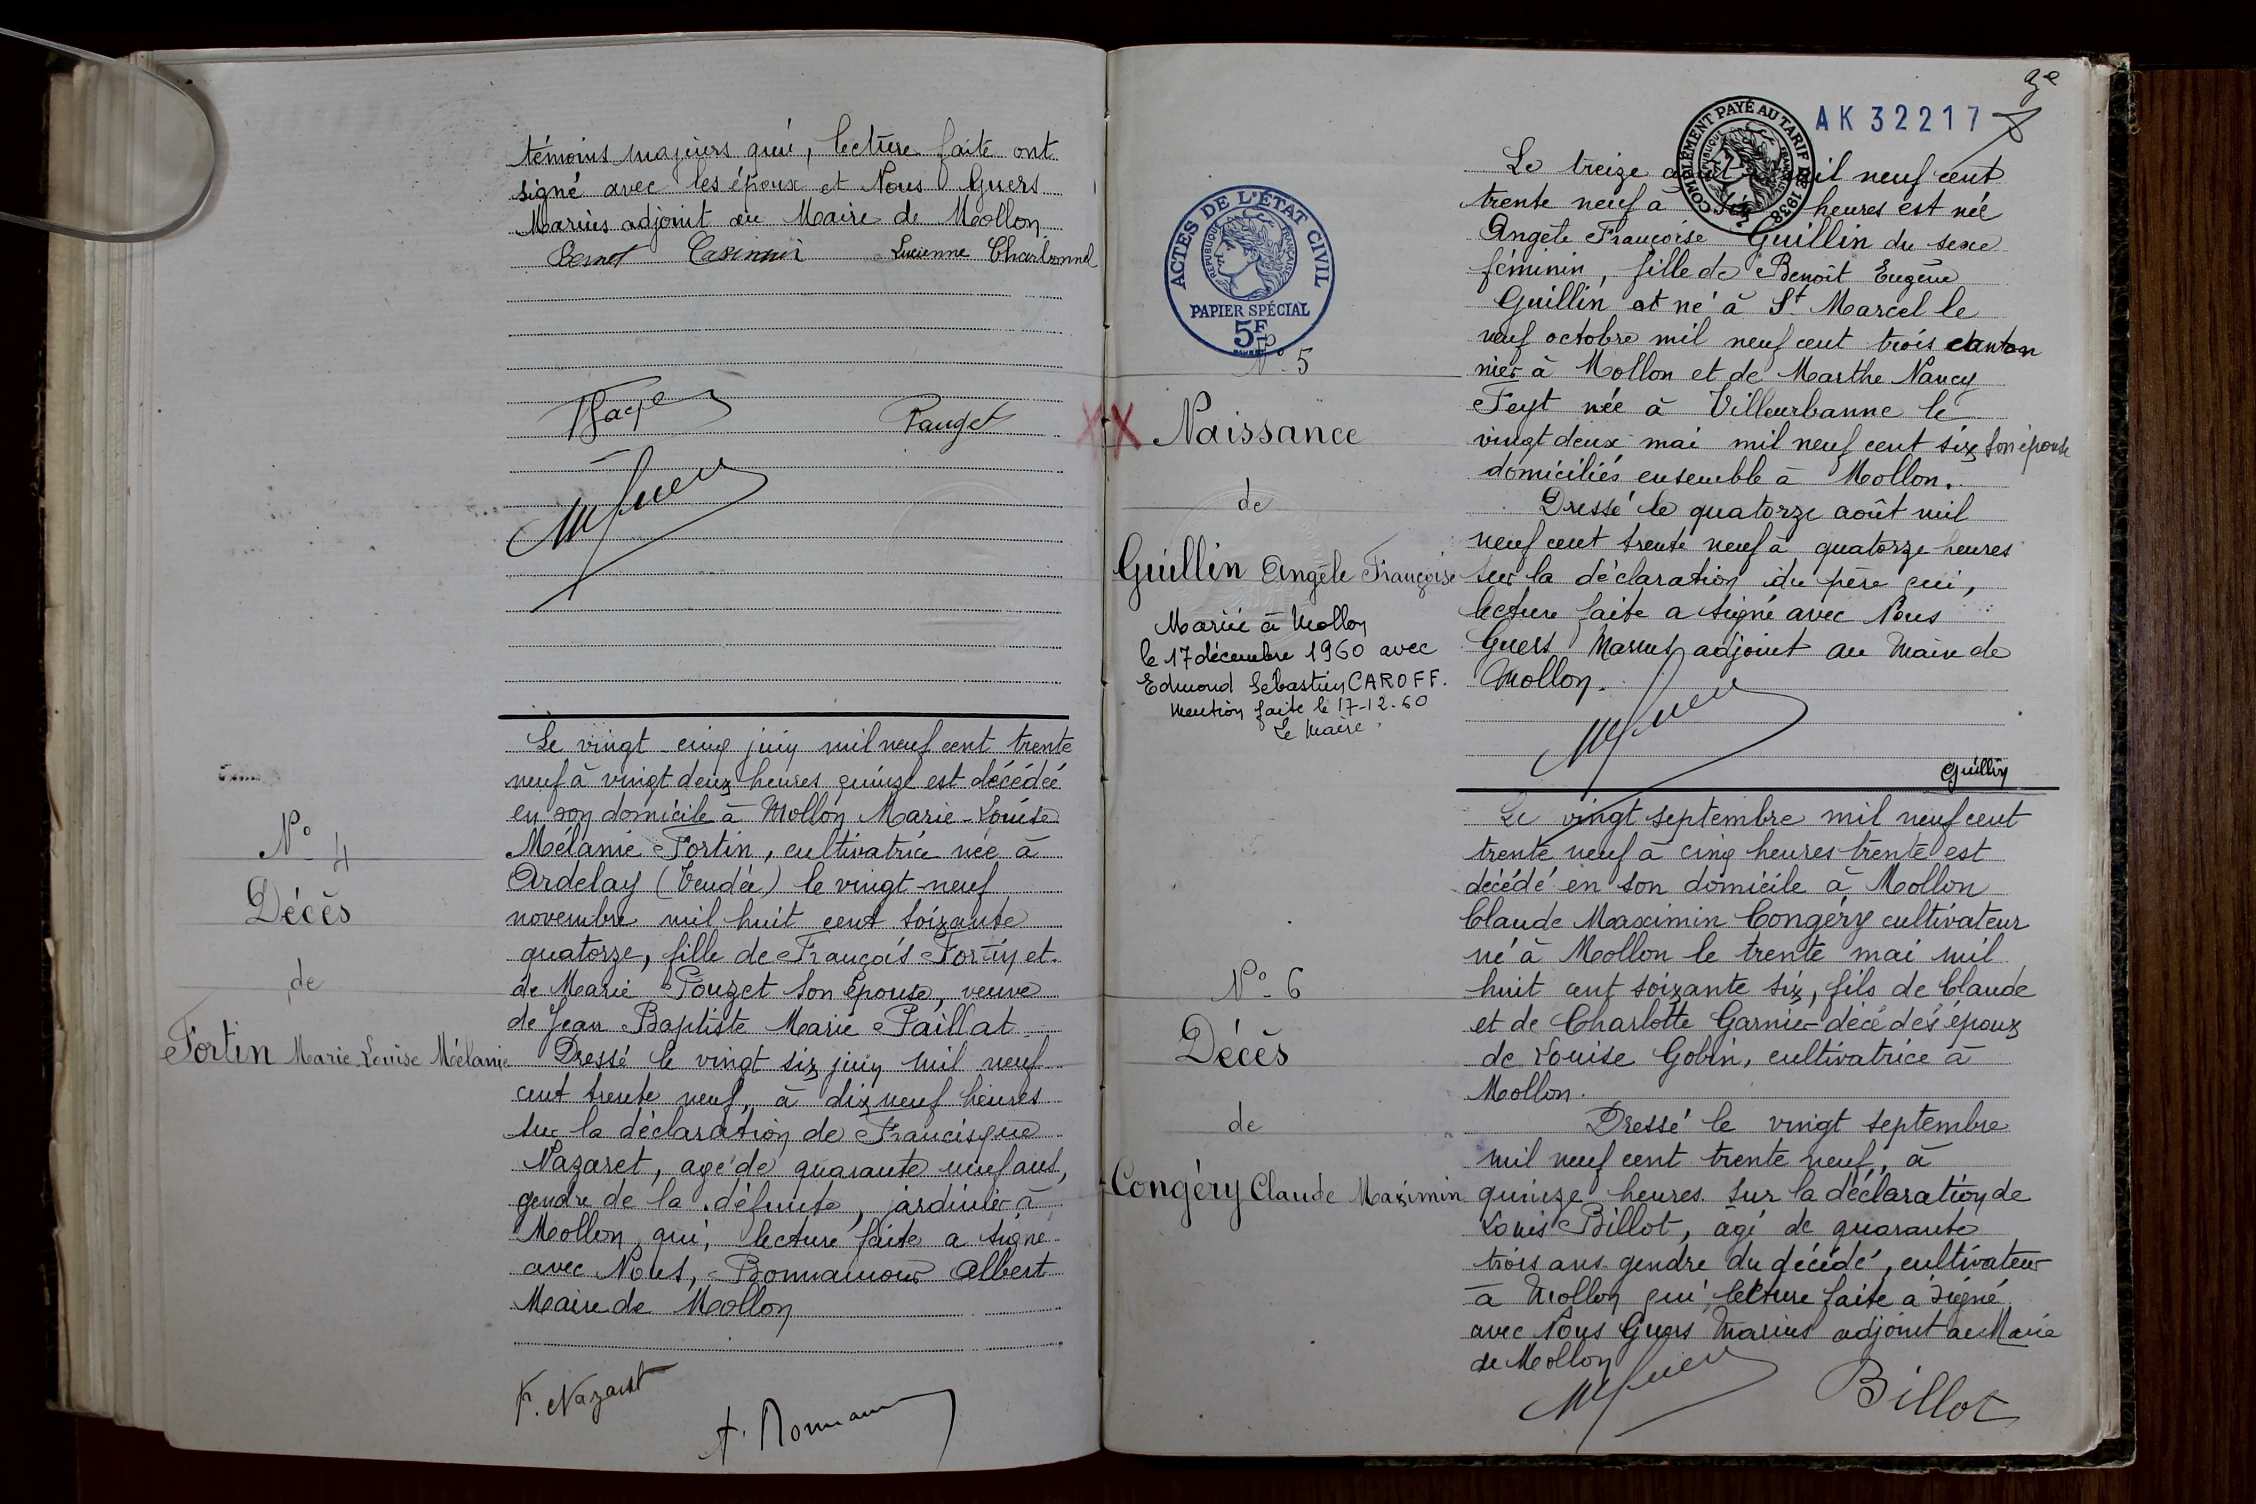 témoins majeurs qui, lecture faite ont
signé avec les époux et Nous Guers
Marius adjoint au Maire de Mollon.
Casimir Lucienne Charbonnel
Pauget
N° 4
Décès
de
Fortin Marie Louise Mélanie
Le vingt-cinq juin mil neuf cent trente
neuf à vingt deux heures quinze est décédée
en son domicile à Mollon Marie-Louise
Mélanie Fortin, cultivatrice née à
Ardelay (Vendée) le vingt-neuf
novembre mil huit cent soixante
quatorze, fille de François Fortin et
de Marie Pouzet son épouse, veuve
de Jean Baptiste Marie Paillat
Dressé le vingt six juin mil neuf
cent trente neuf, à dix neuf heures
sur la déclaration de Francisque
Nazaret, agé de quarante neuf ans,
gendre de la défunte, jardinier à
Mollon qui, lecture faite a signé
avec Nous, Bonnamour Albert
Maire de Mollon
F. Nazaret
AK 32217
COMPLÉMENT PAYÉ AU TARIF DE 1938
RÉPUBLIQUE FRANÇAISE
ACTES DE L'ÉTAT CIVIL
RÉPUBLIQUE FRANÇAISE
PAPIER SPÉCIAL
5F
N° 5
Naissance
de
Guillin Angèle Françoise
Mariée à Mollon
le 17 décembre 1960 avec
Edmond Sébastien CAROFF.
Mention faite le 17-12-60
Le Maire
Le treize août mil neuf cent
trente neuf à heures est née
Angèle Françoise Guillin du sexe
féminin, fille de Benoît Eugène
Guillin né à St Marcel le
neuf octobre mil neuf cent trois canton
nier à Mollon et de Marthe Nancy
Feyt née à Villeurbanne le
vingt deux mai mil neuf cent six son épouse
domiciliés ensemble à Mollon.
Dressé le quatorze août mil
neuf cent trente neuf à quatorze heures
sur la déclaration du père qui,
lecture faite a signé avec Nous
Guers Marius adjoint au Maire de
Mollon.
Guillin
N° 6
Décès
de
Congéry Claude Maximin
Le vingt septembre mil neuf cent
trente neuf à cinq heures trente est
décédé en son domicile à Mollon
Claude Maximin Congéry cultivateur
né à Mollon le trente mai mil
huit cent soixante six, fils de Claude
et de Charlotte Garnier décédés époux
de Louise Gobin, cultivatrice à
Mollon.
Dressé le vingt septembre
mil neuf cent trente neuf, à
quinze heures sur la déclaration de
Louis Billot, âgé de quarante
trois ans gendre du décédé, cultivateur
à Mollon qui, lecture faite a signé
avec Nous Guers Marius adjoint au Maire
de Mollon
Billot